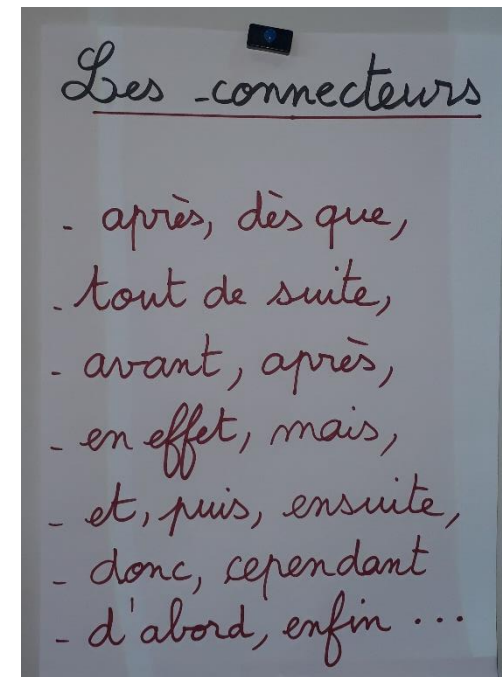 Les connecteurs
- après, dès que,
- tout de suite,
- avant, après,
- en effet, mais,
- et, puis, ensuite,
- donc, cependant
- d'abord, enfin ...